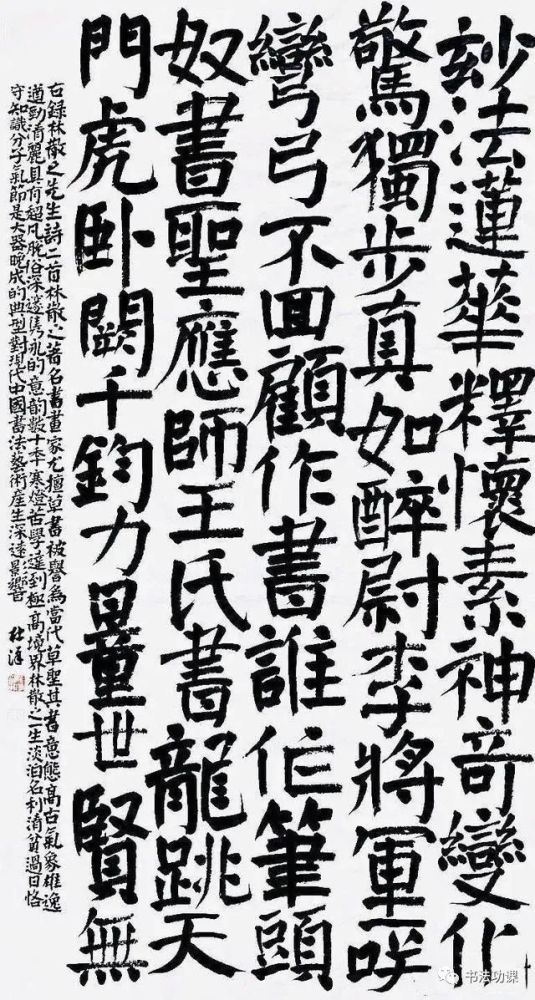 玅法蓮華釋懷素神奇變化
驚獨步真如醉尉李將軍咲
彎弓不回顧作書誰作筆頭
奴書聖應師王氏書龍跳天
門虎卧闕千鈞力量世賢無
右録林散之先生詩二首林散之著名書畫家尤擅草書被譽為當代草聖其書意態高古氣象雄逸
遒勁清麗具有超凡脫俗深邃雋永的意韵數十年寒燈苦學達到極高境界林散之一生淡泊名利清貧過日恪
守知識分子氣節是大器晚成的典型對現代中國書法藝術産生深遠影響
书法功课